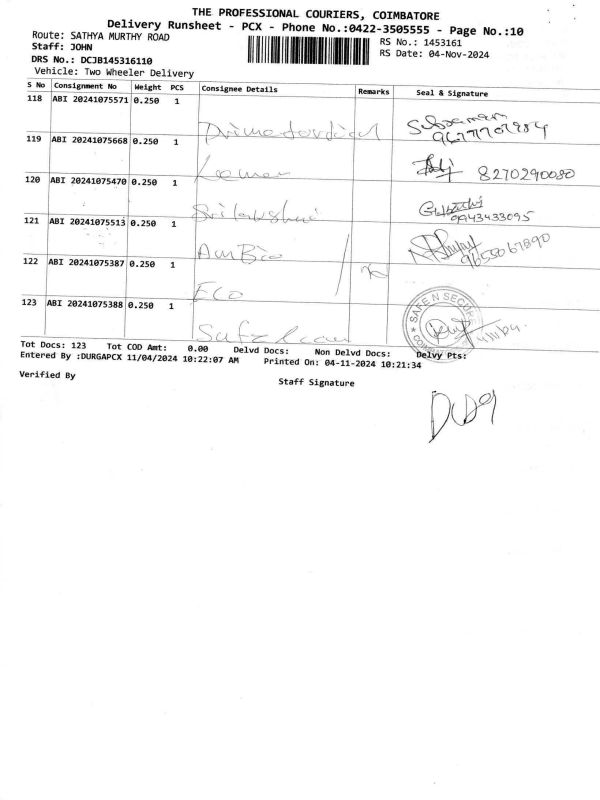 THE PROFESSIONAL COURIERS, COIMBATORE
Delivery Runsheet - PCX - Phone No.:0422-3505555 - Page No.:10
Route: SATHYA MURTHY ROAD
RS No.: 1453161
Staff: JOHN
RS Date: 04-Nov-2024
DRS No.: DCJB145316110
Vehicle: Two Wheeler Delivery
S No Consignment No Weight PCS Consignee Details Remarks Seal & Signature
118 ABI 20241075571 0.250 1
9677707984
119 ABI 20241075668 0.250 1
8270290080
120 ABI 20241075470 0.250 1 Srilakshmi
9943433095
121 ABI 20241075513 0.250 1 AmBio
9655067890
122 ABI 20241075387 0.250 1 Eco
SAFE N SECURE
123 ABI 20241075388 0.250 1
4/11/24
Tot Docs: 123 Tot COD Amt: 0.00 Delvd Docs: Non Delvd Docs: Delvy Pts:
Entered By :DURGAPCX 11/04/2024 10:22:07 AM Printed On: 04-11-2024 10:21:34
Verified By
Staff Signature